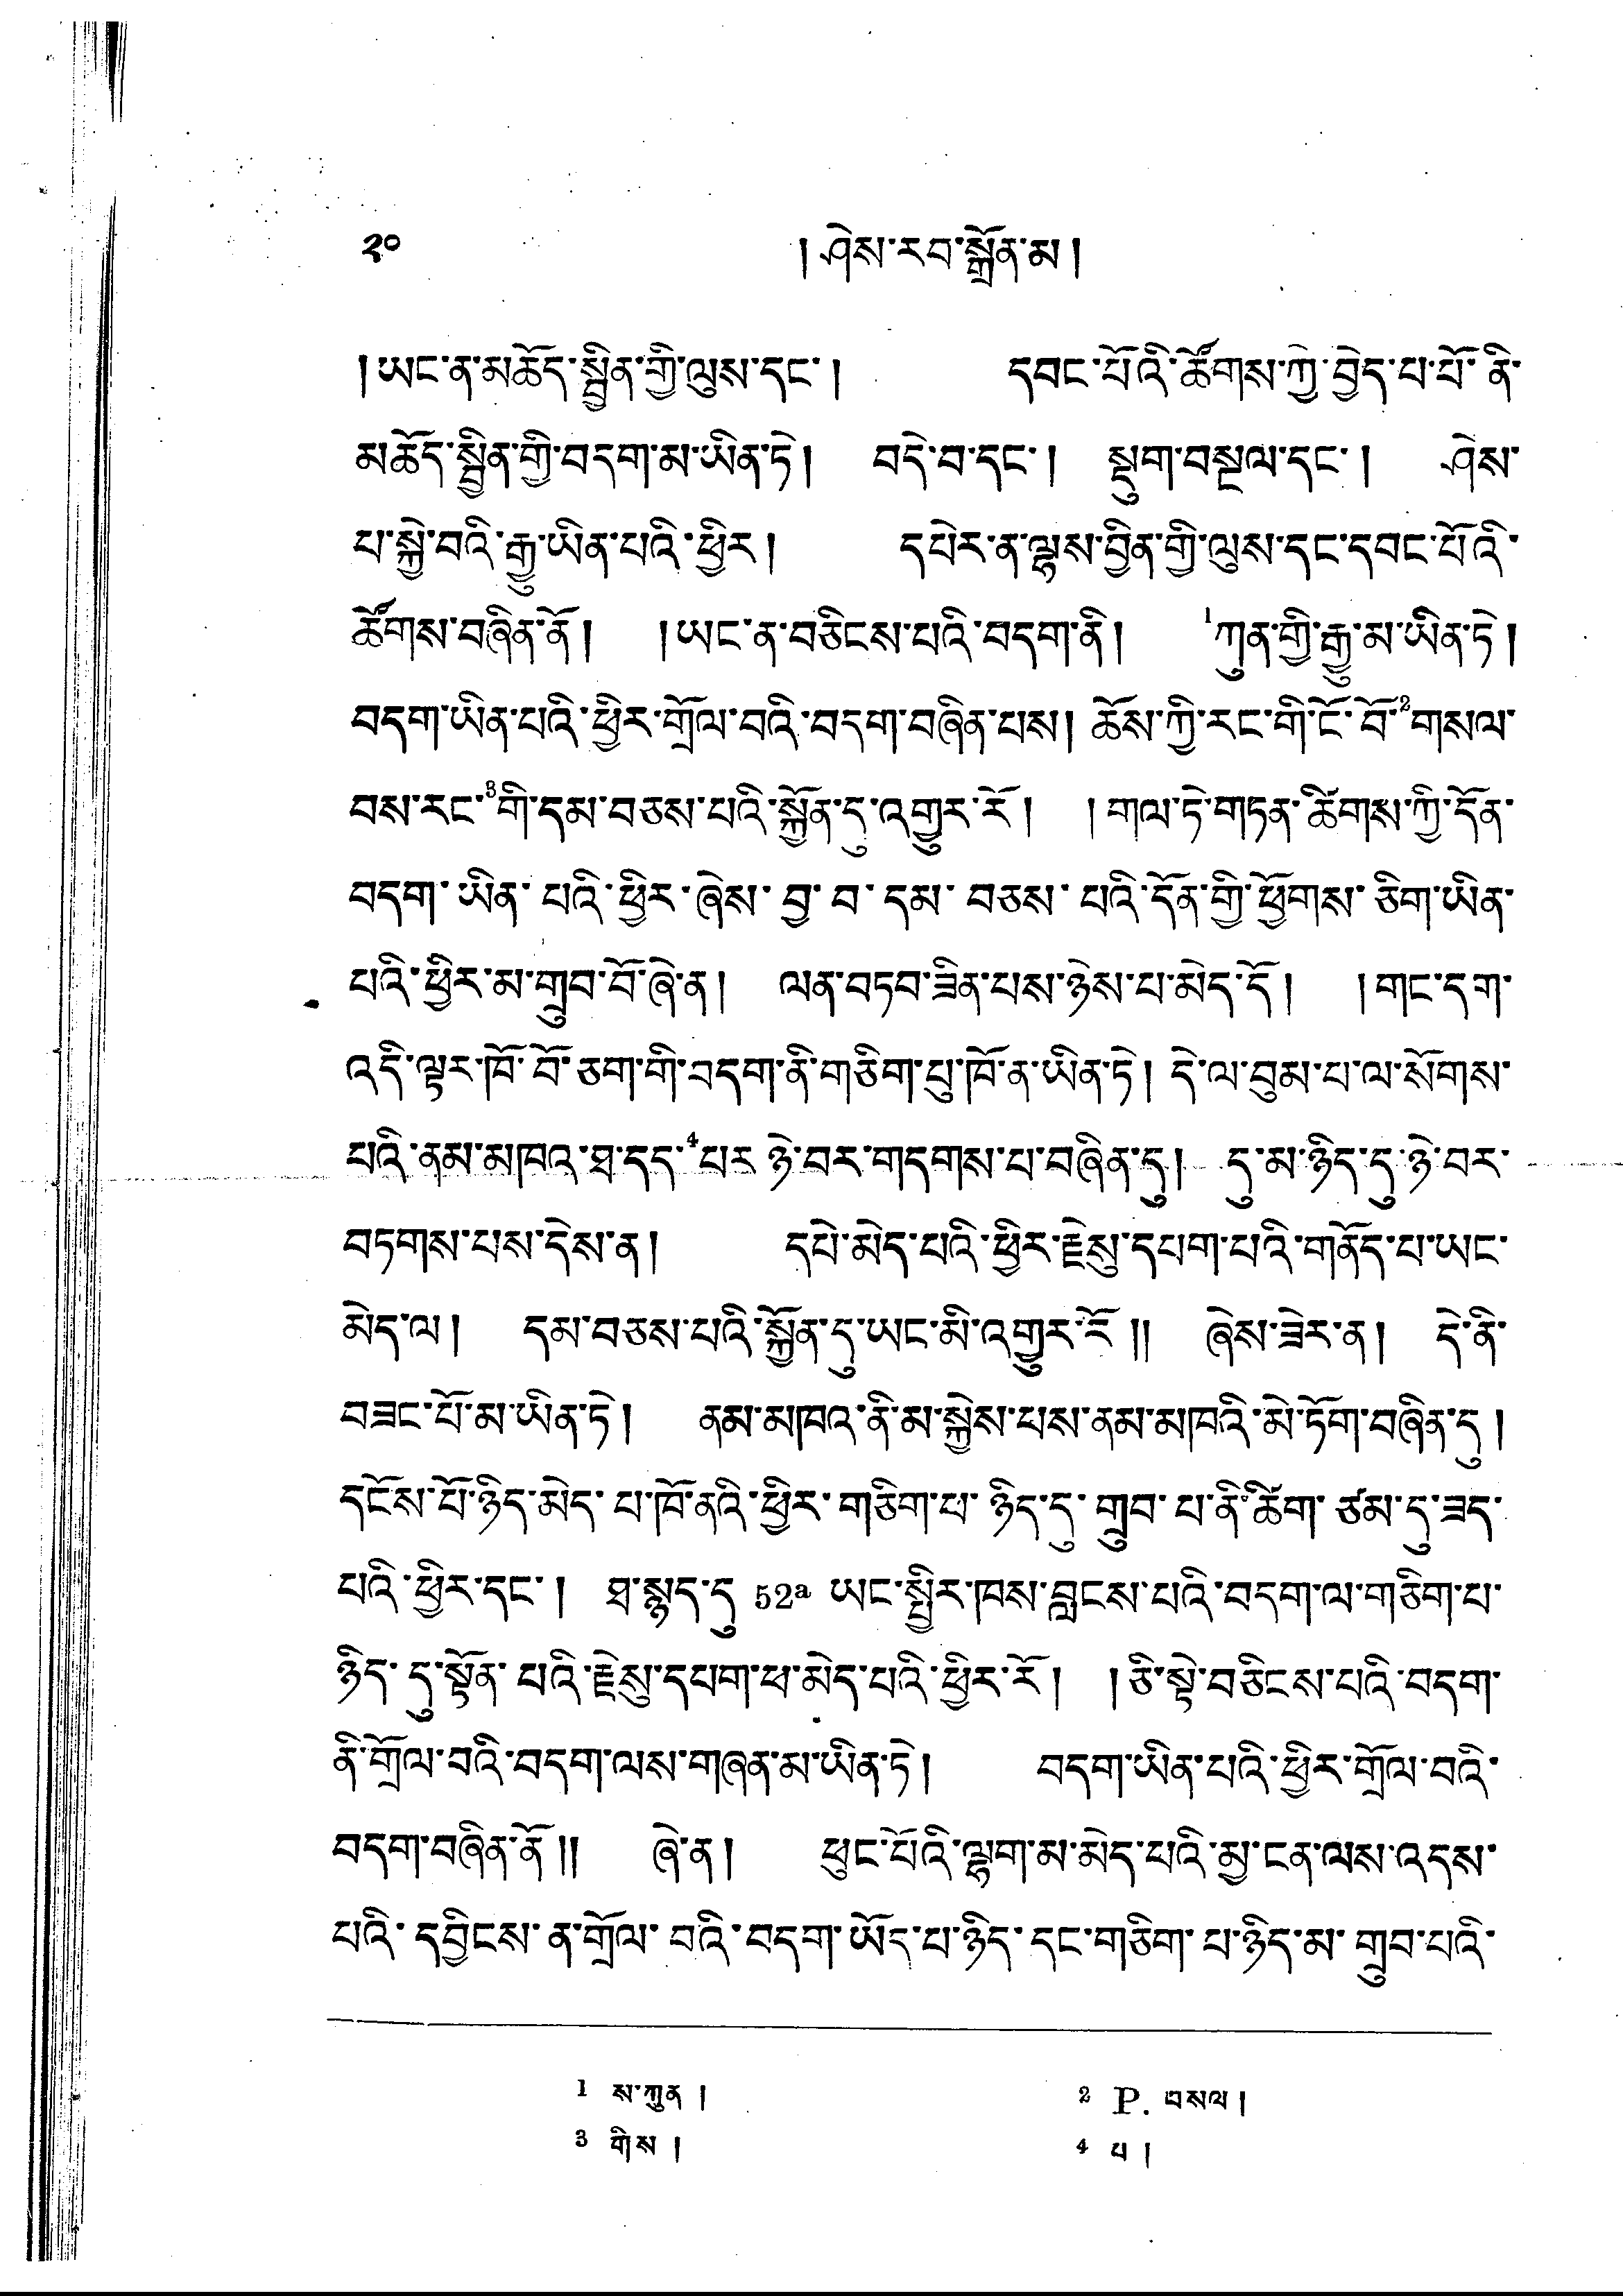 २०
།ཤེས་རབ་སྒྲོན་མ།
།ཡང་ན་མཆོད་སྦྱིན་གྱི་ལུས་དང་། དབང་པོའི་ཚོགས་ཀྱེ་བྱེད་པ་པོ་ནི་
མཆོད་སྦྱིན་གྱི་བདག་མ་ཡིན་ཏེ། བདེ་བ་དང་། སྡུག་བསྔལ་དང་། ཤེས་
པ་སྐྱེ་བའི་རྒྱུ་ཡིན་པའི་ཕྱིར། དཔེར་ན་ལྷས་བྱིན་གྱི་ལུས་དང་དབང་པོའི་
ཚོགས་བཞིན་ནོ། །ཡང་ན་བཅིངས་པའི་བདག་ནི། 1ཀུན་གྱི་རྒྱུ་མ་ཡིན་ཏེ།
བདག་ཡིན་པའི་ཕྱིར་གྲོལ་བའི་བདག་བཞིན་པས། ཆོས་ཀྱི་རང་གི་ངོ་བོ་2གསལ་
བས་རང་3གི་དམ་བཅས་པའི་སྐྱོན་དུ་འགྱུར་རོ། །གལ་ཏེ་གཏན་ཚིགས་ཀྱི་དོན་
བདག་ཡིན་པའི་ཕྱིར་ཞེས་བྱ་བ་དམ་བཅས་པའི་དོན་གྱི་ཕྱོགས་ཅིག་ཡིན་
པའི་ཕྱིར་མ་གྲུབ་བོ་ཞེ་ན། ལན་བཏབ་ཟིན་པས་ཉེས་པ་མེད་དོ། །གང་དག་
འདི་ལྟར་ཁོ་བོ་ཅག་གི་བདག་ནི་གཅིག་པུ་ཁོ་ན་ཡིན་ཏེ། དེ་ལ་བུམ་པ་ལ་སོགས་
པའི་ནམ་མཁའ་ཐ་དད་4པར་ཉེ་བར་གདགས་པ་བཞིན་དུ། དུ་མ་ཉིད་དུ་ཉེ་བར་
བཏགས་པས་དེས་ན། དཔེ་མེད་པའི་ཕྱིར་རྗེསུ་དཔག་པའི་གནོད་པ་ཡང་
མེད་ལ། དམ་བཅས་པའི་སྐྱོན་དུ་ཡང་མི་འགྱུར་རོ།། ཞེས་ཟེར་ན། དེ་ནི་
བཟང་པོ་མ་ཡིན་ཏེ། ནམ་མཁའ་ནི་མ་སྐྱེས་པས་ནམ་མཁའི་མེ་ཏོག་བཞིན་དུ།
དངོས་པོ་ཉིད་མེད་པ་ཁོ་ནའི་ཕྱིར་གཅིག་པ་ཉིད་དུ་གྲུབ་པ་ནི་ཚིག་ཙམ་དུ་ཟད་
པའི་ཕྱིར་དང་། ཐ་སྙད་དུ 52a ཡང་སྤྱིར་ཁས་བླངས་པའི་བདག་ལ་གཅིག་པ་
ཉིད་དུ་སྟོན་པའི་རྗེསུ་དཔག་པ་མེད་པའི་ཕྱིར་རོ། །ཅི་སྟེ་བཅིངས་པའི་བདག་
ནི་གྲོལ་བའི་བདག་ལས་གཞན་མ་ཡིན་ཏེ། བདག་ཡིན་པའི་ཕྱིར་གྲོལ་བའི་
བདག་བཞིན་ནོ།། ཞེ་ན། ཕུང་པོའི་ལྷག་མ་མེད་པའི་མྱ་ངན་ལས་འདས་
པའི་དབྱིངས་ན་གྲོལ་བའི་བདག་ཡོད་པ་ཉིད་དང་གཅིག་པ་ཉིད་མ་གྲུབ་པའི་
1 ས་ཀུན། 2 P. བསལ།
3 གིས། 4 པ།